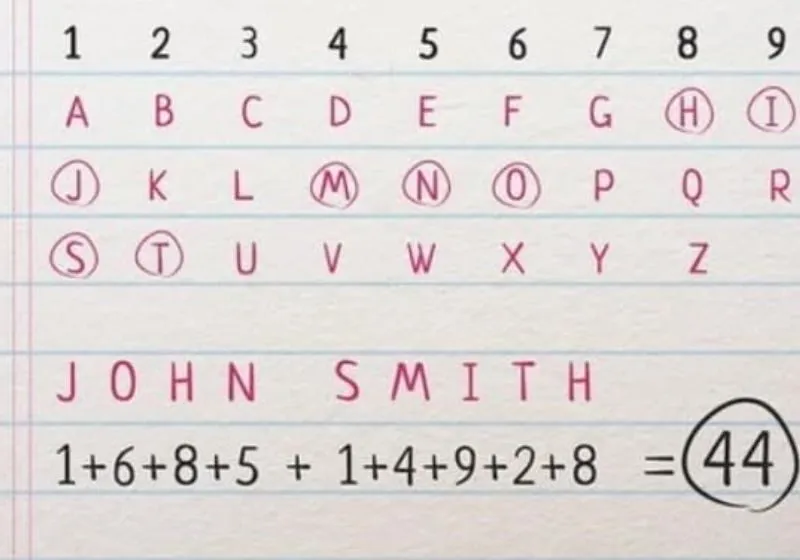 1 2 3 4 5 6 7 8 9
A B C D E F G H I
J K L M N O P Q R
S T U V W X Y Z
J O H N S M I T H
1+6+8+5 + 1+4+9+2+8 = 44